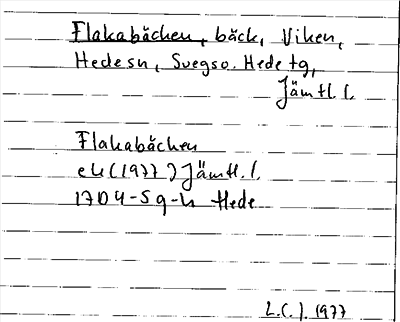 Flakabäcken, bäck, Viken,
Hedesn, Svegs o. Hede tg,
Jämtl. l.
Flakabäcken
ek (1977) Jämtl. l.
17D 4-5 g-h Hede
L.C.J. 1977